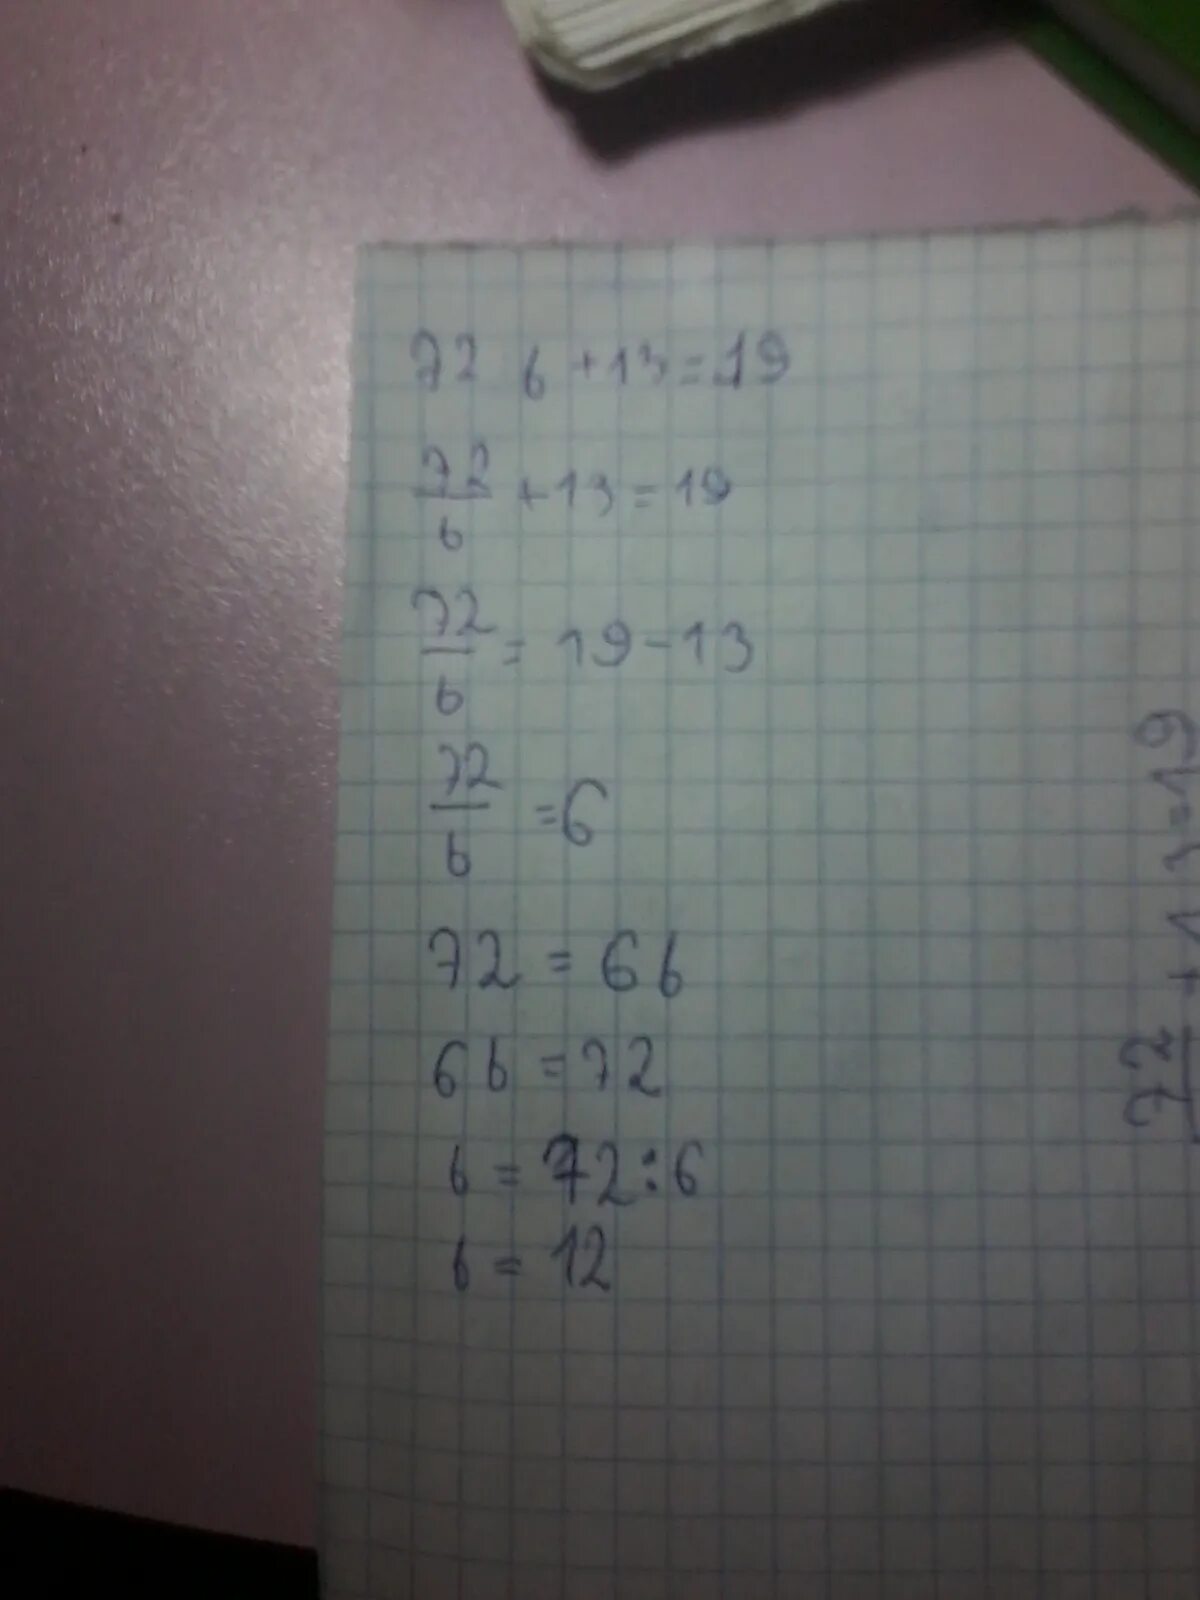 72 b + 13 = 19
72/b + 13 = 19
72/b = 19 - 13
72/b = 6
72 = 6b
6b = 72
b = 72 : 6
b = 12
72 + 13 = 19